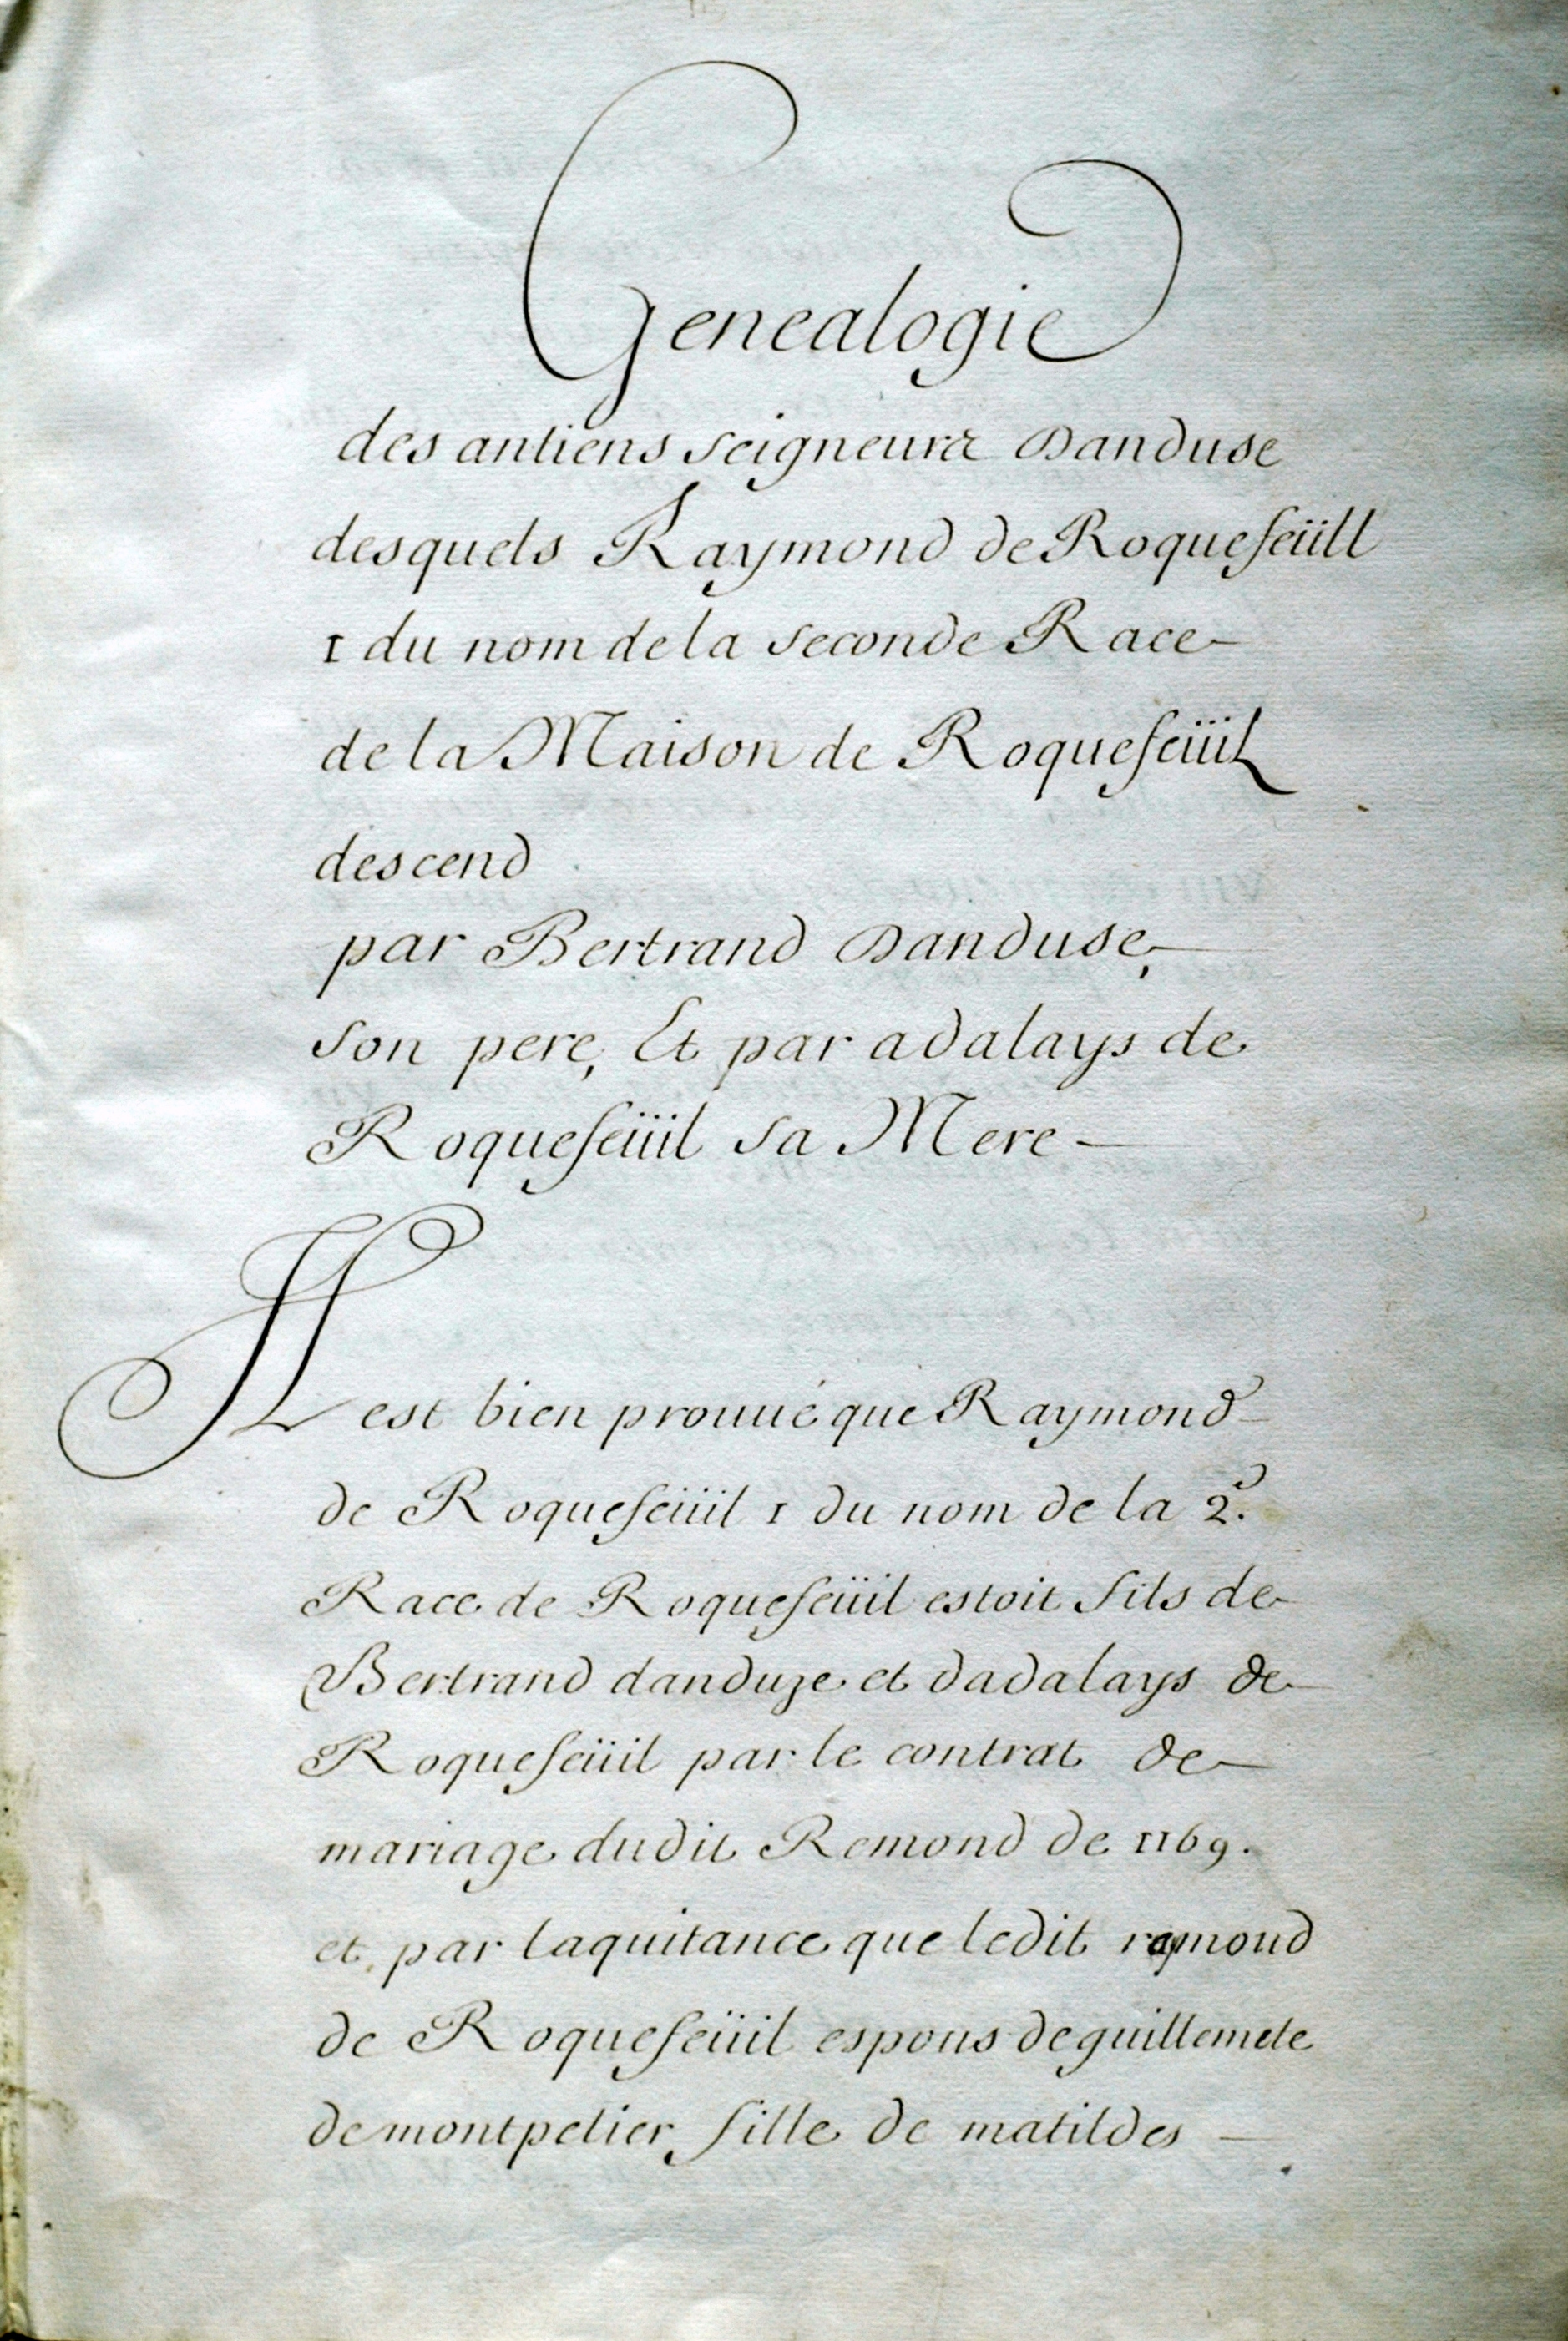 Genealogie
des antiens seigneurs Danduse
desquels Raymond de Roquefeüill
1 du nom de la seconde Race
de la Maison de Roquefeüil
descend
par Bertrand Danduse,
son pere, Et par adalays de
Roquefeüil sa Mere
IL est bien prouué que Raymond
de Roquefeüil 1 du nom de la 2.e
Race de Roquefeüil estoit fils de
Bertrand danduze et dadalays de
Roquefeüil par le contrat de
mariage dudit Remond de 1169.
et par laquitance que ledit raymond
de Roquefeüil espous de guillemete
de montpelier fille de matildes